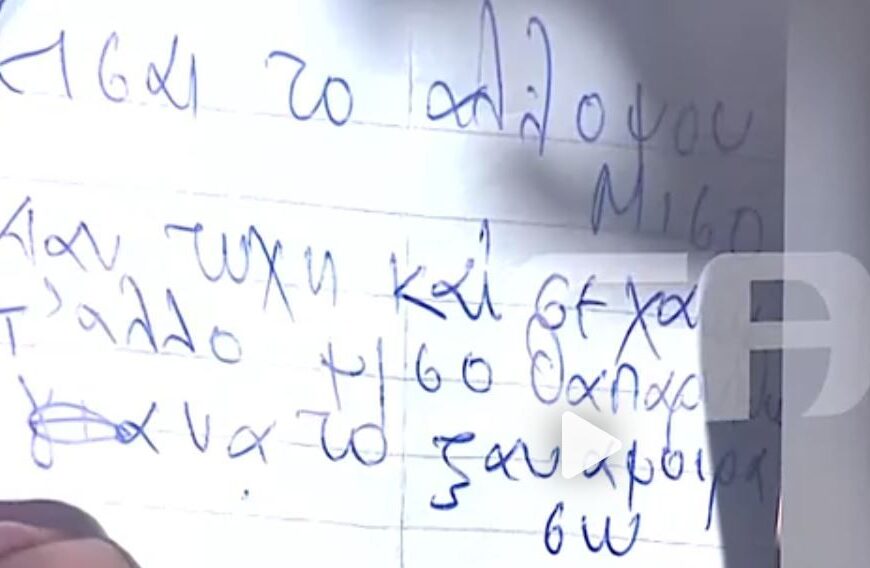 Εισαι το αλλο μου
μισο
Αν τυχη και σε χα
τ' αλλο μισο θα παρα
να το ξαναμοιρα
σω